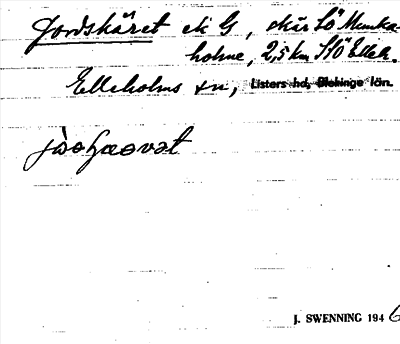 Jordskäret ek G, skär SÖ Munka-
holme, 2,5 km SSÖ Elleh.
Elleholms sn, Listers hd, Blekinge län.
J. SWENNING 1946